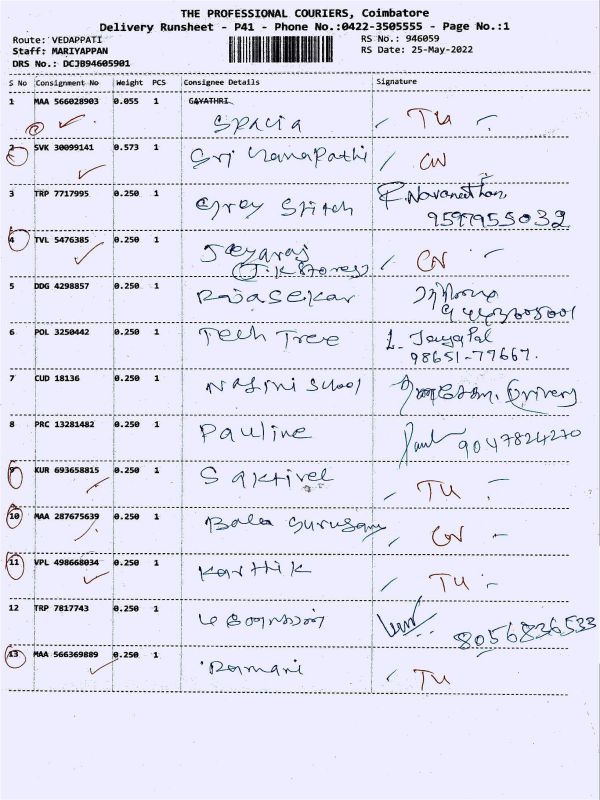 THE PROFESSIONAL COURIERS, Coimbatore
Delivery Runsheet - P41 - Phone No.:0422-3505555 - Page No.:1
Route: VEDAPPATI RS No.: 946059
Staff: MARIYAPPAN RS Date: 25-May-2022
DRS No.: DCJB94605901
S No Consignment No Weight PCS Consignee Details Signature
1 MAA 566028903 0.055 1 GAYATHRI
Spacia TU
2 SVK 30099141 0.573 1 Sri Ganapathi CN
3 TRP 7717995 0.250 1 Grey Stitch R. Navaneethan
9597955032
4 TVL 5476385 0.250 1 Jeyaraj CN
(J.K Stores)
5 DDG 4298857 0.250 1 Rajasekar
6 POL 3250442 0.250 1 Tech Tree L. Jayapal
98651-77667.
7 CUD 18136 0.250 1 Nasini School
8 PRC 13281482 0.250 1 Pauline Paul 9047824270
9 KUR 693658815 0.250 1 Saktivel TU
10 MAA 287675639 0.250 1 Bala Gurusamy CN
11 VPL 498668034 0.250 1 Karthik TU
12 TRP 7817743 0.250 1
8056836533
13 MAA 566369889 0.250 1 Ramani TU